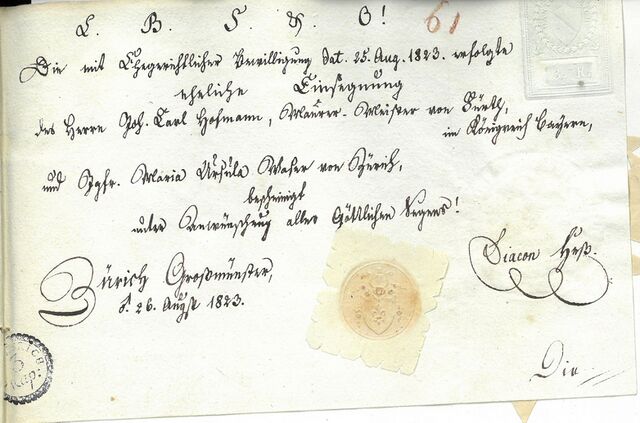 L. B. S. & O!
61
Die mit Ehegerichtlicher Bewilligung dat. 25. Aug. 1823. erfolgte
eheliche Einsegnung
des Herrn Joh. Carl Hofmann, Maurer-Meister von Fürth,
im Königreich Bayern,
und Jgfr. Maria Ursula Waser von Zürich,
bescheinigt
unter Anwünschung alles Göttlichen Segens!
Diacon Heß.
Zürich Großmünster,
d. 26. Augst 1823.
Die